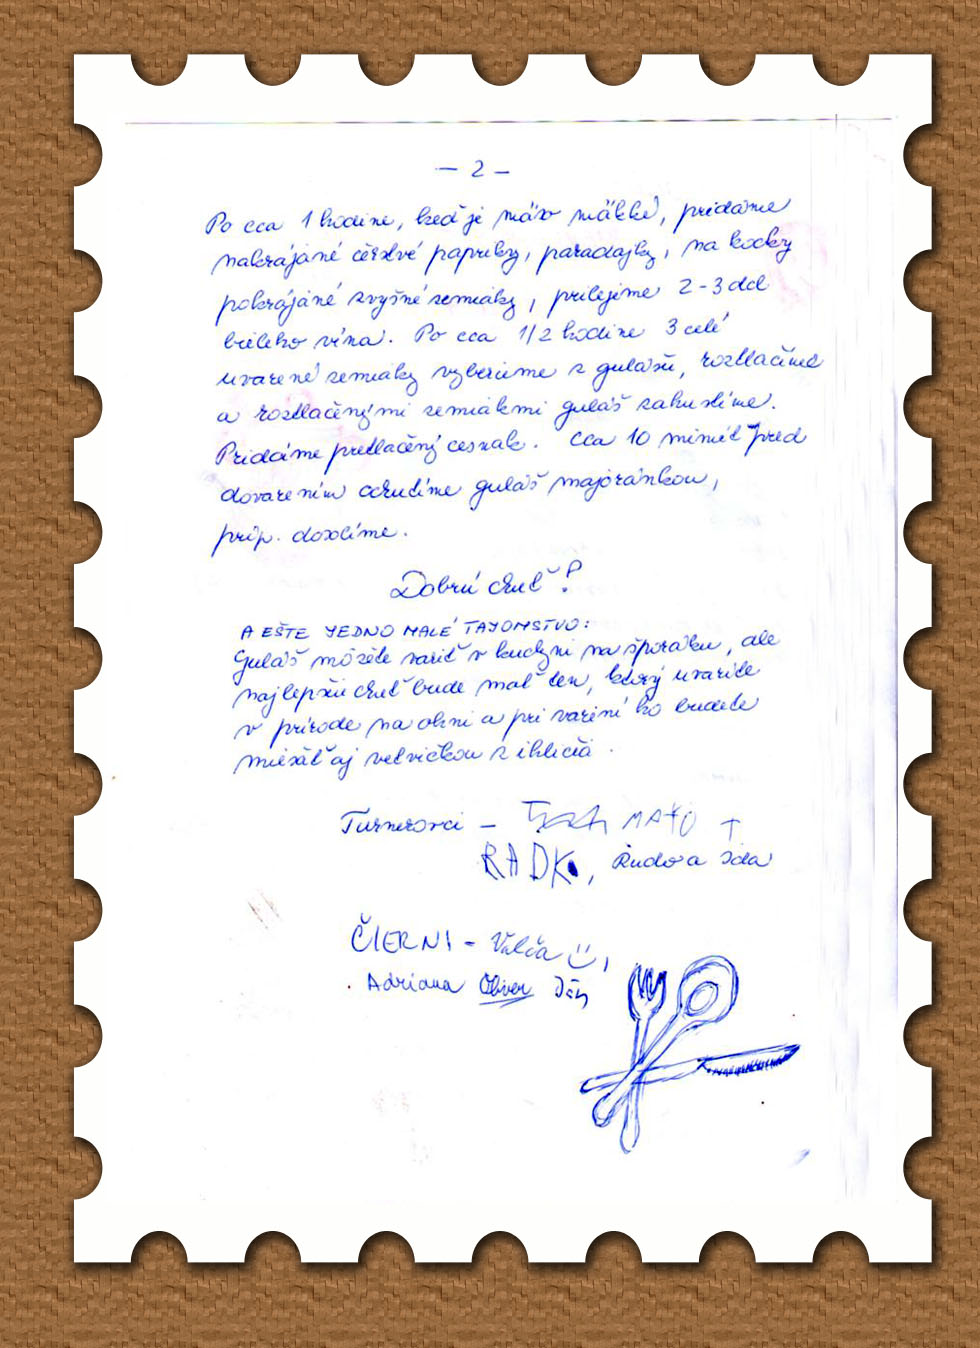 — 2 —
Po cca 1 hodine, keď je mäso mäkké, pridáme
nakrájané čerstvé papriky, paradajky, na kocky
pokrájané zvyšné zemiaky, prilejeme 2-3 dcl
bieleho vína. Po cca 1/2 hodine 3 celé
uvarené zemiaky vyberieme z gulášu, roztlačíme
a roztlačenými zemiakmi guláš zahustíme.
Pridáme pretlačený cesnak. Cca 10 minút pred
dovarením ochutíme guláš majoránkou,
príp. dosolíme.
Dobrú chuť!
A EŠTE JEDNO MALÉ TAJOMSTVO:
Guláš môžete variť v kuchyni na šporáku, ale
najlepšiu chuť bude mať ten, ktorý uvaríte
v prírode na ohni a pri varení ho budete
miešať aj vetvičkou z ihličia.
Turnerovci – MAŤO
RADKO, Rudo a Ida
ČIERNI - Valča
Adriana Oliver Ján